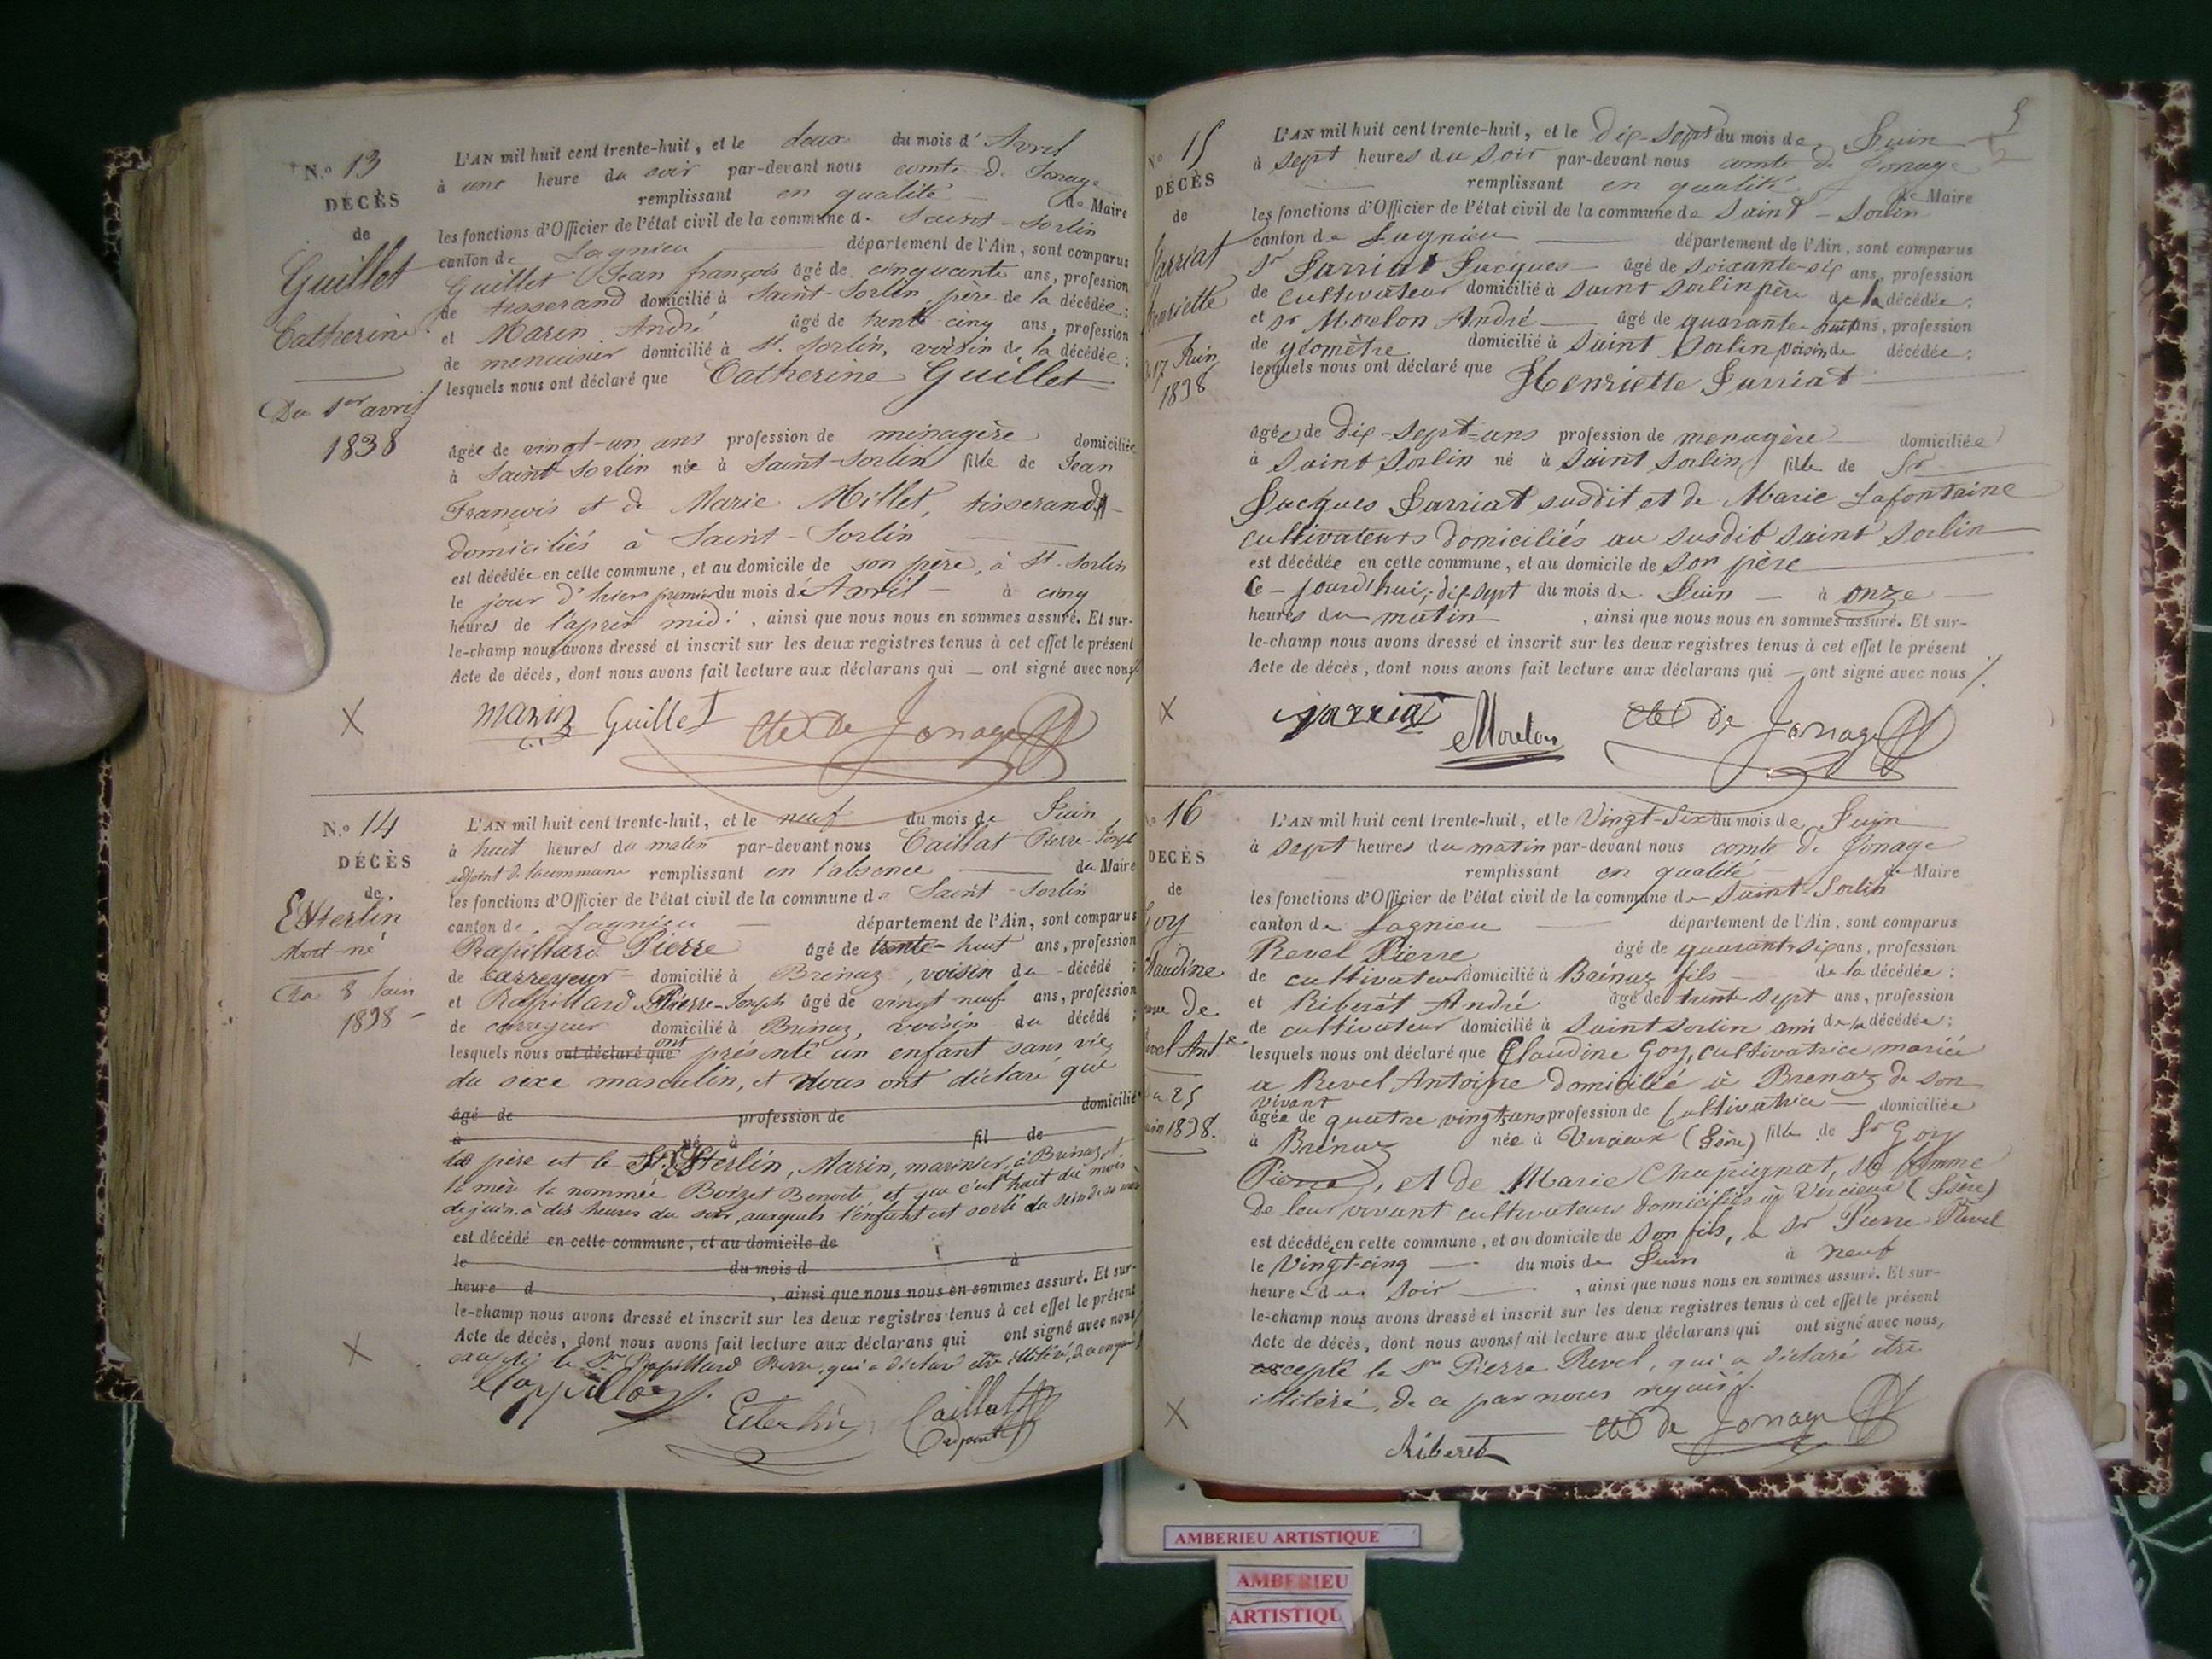 N.o 13
DÉCÈS
de
Guillet
Catherine
Du 1er avril
1838
L'AN mil huit cent trente-huit, et le deux du mois d'Avril
à une heure du soir par-devant nous comte de Jonage
remplissant en qualité de Maire
les fonctions d'Officier de l'état civil de la commune de Saint-Sorlin
canton de Lagnieu département de l'Ain, sont comparus
Guillet Jean françois âgé de cinquante ans, profession
de tisserand domicilié à Saint-Sorlin, père de la décédée;
et Marin André âgé de trente cinq ans, profession
de menuisier domicilié à St. Sorlin, voisin de la décédée;
lesquels nous ont déclaré que Catherine Guillet
âgée de vingt-un ans profession de ménagère domiciliée
à Saint Sorlin née à Saint-Sorlin fille de Jean
François et de Marie Millet, tisserands
domiciliés à Saint-Sorlin
est décédée en cette commune, et au domicile de son père, à St-Sorlin
le jour d'hier premier du mois d'Avril à cinq
heures de l'après midi, ainsi que nous nous en sommes assuré. Et sur-
le-champ nous avons dressé et inscrit sur les deux registres tenus à cet effet le présent
Acte de décès, dont nous avons fait lecture aux déclarans qui ont signé avec nous
X marin Guillet Cte de Jonage
N.o 14
DÉCÈS
de
Esterlin
Mort-né
Du 8 Juin
1838
L'AN mil huit cent trente-huit, et le neuf du mois de Juin
à huit heures du matin par-devant nous Caillat Pierre-Joseph
adjoint de la commune remplissant en l'absence du Maire
les fonctions d'Officier de l'état civil de la commune de Saint-Sorlin
canton de Lagnieu département de l'Ain, sont comparus
Rapillard Pierre âgé de trente-huit ans, profession
de carreyeur domicilié à Brénaz, voisin du décédé;
et Rapillard Pierre-Joseph âgé de vingt neuf ans, profession
de carreyeur domicilié à Brénaz, voisin du décédé;
lesquels nous ont déclaré que ont présenté un enfant sans vie,
du sexe masculin, et nous ont déclaré que
âgé de profession de domicilié
à né à fil de
le père et le Sr. Esterlin, Marin, marinier, à Brénaz, et
la mère la nommée Boizet Benoite, et que c'est huit du mois
de juin à dix heures du soir, auxquels l'enfant est sorti du sein de sa mère
est décédé en cette commune, et au domicile de
le du mois d à
heure d , ainsi que nous nous en sommes assuré. Et sur-
le-champ nous avons dressé et inscrit sur les deux registres tenus à cet effet le présent
Acte de décès, dont nous avons fait lecture aux déclarans qui ont signé avec nous
excepté le Sr Rapillard Pierre, qui a déclaré être illitéré, de ce
X Caillat
adjoint
5
N.o 15
DÉCÈS
de
Jarriat
Henriette
17 Juin
1838
L'AN mil huit cent trente-huit, et le dix-sept du mois de Juin
à sept heures du soir par-devant nous comte de Jonage
remplissant en qualité de Maire
les fonctions d'Officier de l'état civil de la commune de Saint-Sorlin
canton de Lagnieu département de l'Ain, sont comparus
Sr Jarriat Jacques âgé de soixante-six ans, profession
de cultivateur domicilié à Saint Sorlin père de la décédée;
et sr Morelon André âgé de quarante huit ans, profession
de géomètre domicilié à Saint Sorlin voisin de décédée;
lesquels nous ont déclaré que Henriette Jarriat
âgée de dix-sept-ans profession de menagère domiciliée
à Saint Sorlin né à Saint Sorlin fille de Sr
Jacques Jarriat susdit et de Marie Lafontaine
cultivateurs domiciliés au susdit Saint Sorlin
est décédée en cette commune, et au domicile de son père
Ce-jourd'hui, dix sept du mois de Juin à onze
heures du matin, ainsi que nous nous en sommes assuré. Et sur-
le-champ nous avons dressé et inscrit sur les deux registres tenus à cet effet le présent
Acte de décès, dont nous avons fait lecture aux déclarans qui ont signé avec nous
X jarriat Morelon Cte de Jonage
16
DÉCÈS
de
Goy
Claudine
de
Ante
25
1838.
L'AN mil huit cent trente-huit, et le Vingt-Six du mois de Juin
à sept heures du matin par-devant nous comte de Jonage
remplissant en qualité de Maire
les fonctions d'Officier de l'état civil de la commune de Saint-Sorlin
canton de Lagnieu département de l'Ain, sont comparus
Revel Pierre âgé de quarante-six ans, profession
de cultivateur domicilié à Brénaz fils de la décédée;
et Riberet André âgé de trente sept ans, profession
de cultivateur domicilié à Saint Sorlin ami de la décédée;
lesquels nous ont déclaré que Claudine Goy, cultivatrice mariée
a Revel Antoine domicilié à Brenaz de son
vivant
âgée de quatre vingt ans profession de Cultivatrice domiciliée
à Brénaz née à Vercieux (Isère) fille de Sr Goy
Pierre, et de Marie Chapignat, sa femme
De leur vivant cultivateurs domiciliés à Vercieux (Isère)
est décédée en cette commune, et au domicile de son fils, sr Pierre Revel
le Vingt-cinq du mois de Juin à neuf
heures du soir, ainsi que nous nous en sommes assuré. Et sur-
le-champ nous avons dressé et inscrit sur les deux registres tenus à cet effet le présent
Acte de décès, dont nous avons fait lecture aux déclarans qui ont signé avec nous,
excepté le Sr Pierre Revel, qui a déclaré être
illitéré, de ce par nous requis.
X Riberet Cte de Jonage
AMBERIEU ARTISTIQUE
AMBERIEU
ARTISTIQU